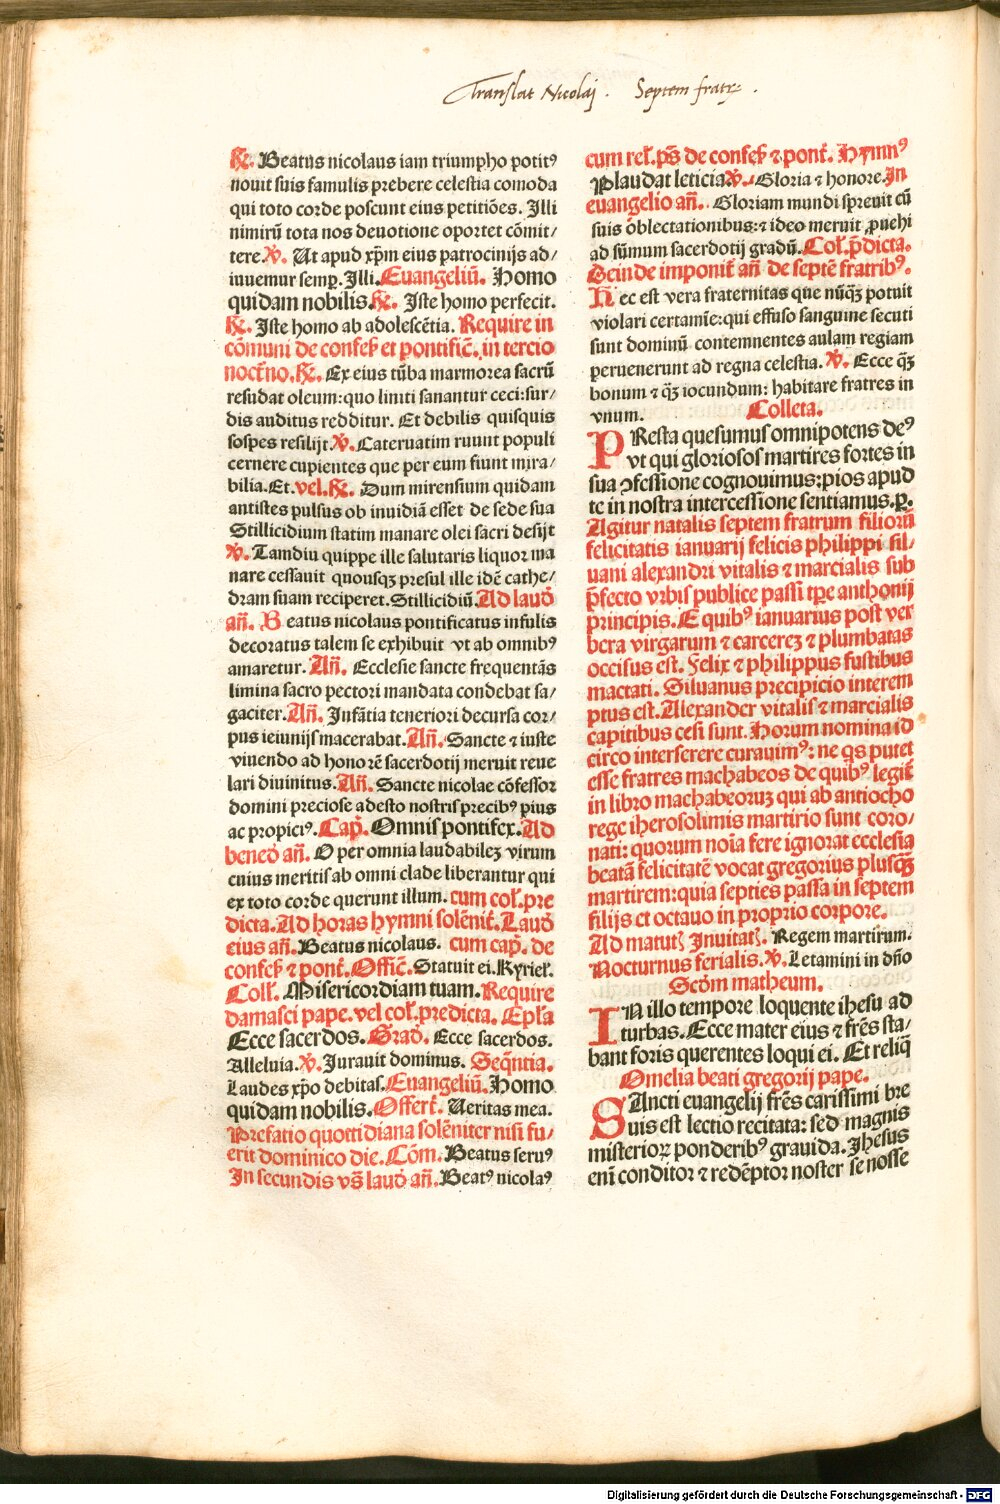 Translat Nicolaj . Septem fratrꝫ .
℟. Beatus nicolaus iam triumpho potitꝰ
nouit suis famulis prebere celestia comoda
qui toto corde poscunt eius petitiões. Illi
nimirū tota nos deuotione oportet cōmit/
tere. ℣. Ut apud xp̄m eius patrocinijs ad/
iuuemur semꝑ. Illi. Euangeliū. Homo
quidam nobilis. ℟. Iste homo perfecit.
℟. Iste homo ab adolescētia. Require in
cōmuni de confesẜ et pontific̄. in tercio
noct̄no. ℟. Ex eius tūba marmorea sacrū
resudat oleum: quo liniti sanantur ceci: sur/
dis auditus redditur. Et debilis quisquis
sospes resilijt ℣. Cateruatim ruunt populi
cernere cupientes que per eum fiunt mira/
bilia. Et. vel. ℟. Dum mirensium quidam
antistes pulsus ob inuidiā esset de sede sua
Stillicidium statim manare olei sacri desijt
℣. Tamdiu quippe ille salutaris liquor ma
nare cessauit quousqꝫ presul ille idē cathe/
dram suam reciperet. Stillicidiū. Ad laud̄
an̄. Beatus nicolaus pontificatus infulis
decoratus talem se exhibuit vt ab omnibꝰ
amaretur. An̄. Ecclesie sancte frequentās
limina sacro pectori mandata condebat sa/
gaciter. An̄. Infātia teneriori decursa cor/
pus ieiunijs macerabat. An̄. Sancte ⁊ iuste
viuendo ad honorē sacerdotij meruit reue
lari diuinitus. An̄. Sancte nicolae cōfessor
domini preciose adesto nostris precibꝰ pius
ac propiciꝰ. Cap̄. Omnis pontifex. Ad
bened̄ an̄. O per omnia laudabileꝫ virum
cuius meritis ab omni clade liberantur qui
ex toto corde querunt illum. cum col̄. pre
dicta. Ad horas hymni solēnit̄. Laud̄
eius an̄. Beatus nicolaus. cum cap̄. de
confesẜ ⁊ pont̄. Offic̄. Statuit ei. Kyriel̄.
Coll̄. Misericordiam tuam. Require
damasci pape. vel col̄. predicta. Epl̄a
Ecce sacerdos. Grad̄. Ecce sacerdos.
Alleluia. ℣. Jurauit dominus. Seq̄ntia.
Laudes xp̄o debitas. Euangeliū. Homo
quidam nobilis. Offert̄. Ueritas mea.
Prefatio quottidiana solēniter nisi fu/
erit dominico die. Cōm. Beatus seruꝰ
In secundis vs̄ laud̄ an̄. Beatꝰ nicolaꝰ
cum rel̄. ps̄ de confesẜ ⁊ pont̄. Hymnꝰ
Plaudat leticia ℣. Gloria ⁊ honore. In
euangelio an̄. Gloriam mundi spreuit cū
suis oblectationibus: ⁊ ideo meruit ꝓuehi
ad sūmum sacerdotij gradū. Col̄. p̄dicta.
Deinde imponit̄ an̄ de septē fratribꝰ.
Hec est vera fraternitas que nūqꝫ potuit
violari certamīe: qui effuso sanguine secuti
sunt dominū contemnentes aulam regiam
peruenerunt ad regna celestia. ℣. Ecce qꝫ̄
bonum ⁊ qꝫ̄ iocundum: habitare fratres in
vnum. Colleta.
PResta quesumus omnipotens deꝰ
vt qui gloriosos martires fortes in
sua ꝯfessione cognouimus: pios apud
te in nostra intercessione sentiamus. ꝑ.
Agitur natalis septem fratrum filiorū
felicitatis ianuarij felicis philippi sil/
uani alexandri vitalis ⁊ marcialis sub
p̄fecto vrbis publice passi tꝑe anthonij
principis. E quibꝰ ianuarius post ver
bera virgarum ⁊ carcereꝫ ⁊ plumbatas
occisus est. Felix ⁊ philippus fustibus
mactati. Siluanus precipicio interem
ptus est. Alexander vitalis ⁊ marcialis
capitibus cesi sunt. Horum nomina id
circo interserere curauimꝰ: ne qs putet
esse fratres machabeos de quibꝰ legit̄
in libro machabeoruꝫ qui ab antiocho
rege iherosolimis martirio sunt coro/
nati: quorum noīa fere ignorat ecclesia
beatā felicitatē vocat gregorius plusqꝫ̄
martirem: quia septies passa in septem
filijs et octauo in proprio corpore.
Ad matutꝭ Inuitatꝭ. Regem martirum.
Nocturnus ferialis. ℣. Letamini in dn̄o
Scd̄m matheum.
IN illo tempore loquente ihesu ad
turbas. Ecce mater eius ⁊ fr̄es sta/
bant foris querentes loqui ei. Et reliq̄
Omelia beati gregorij pape.
SAncti euangelij fr̄es carissimi bre
uis est lectio recitata: sed magnis
misterioꝝ ponderibꝰ grauida. Ihesus
eni conditor ⁊ redēptor noster se nosse
Digitalisierung gefördert durch die Deutsche Forschungsgemeinschaft - DFG